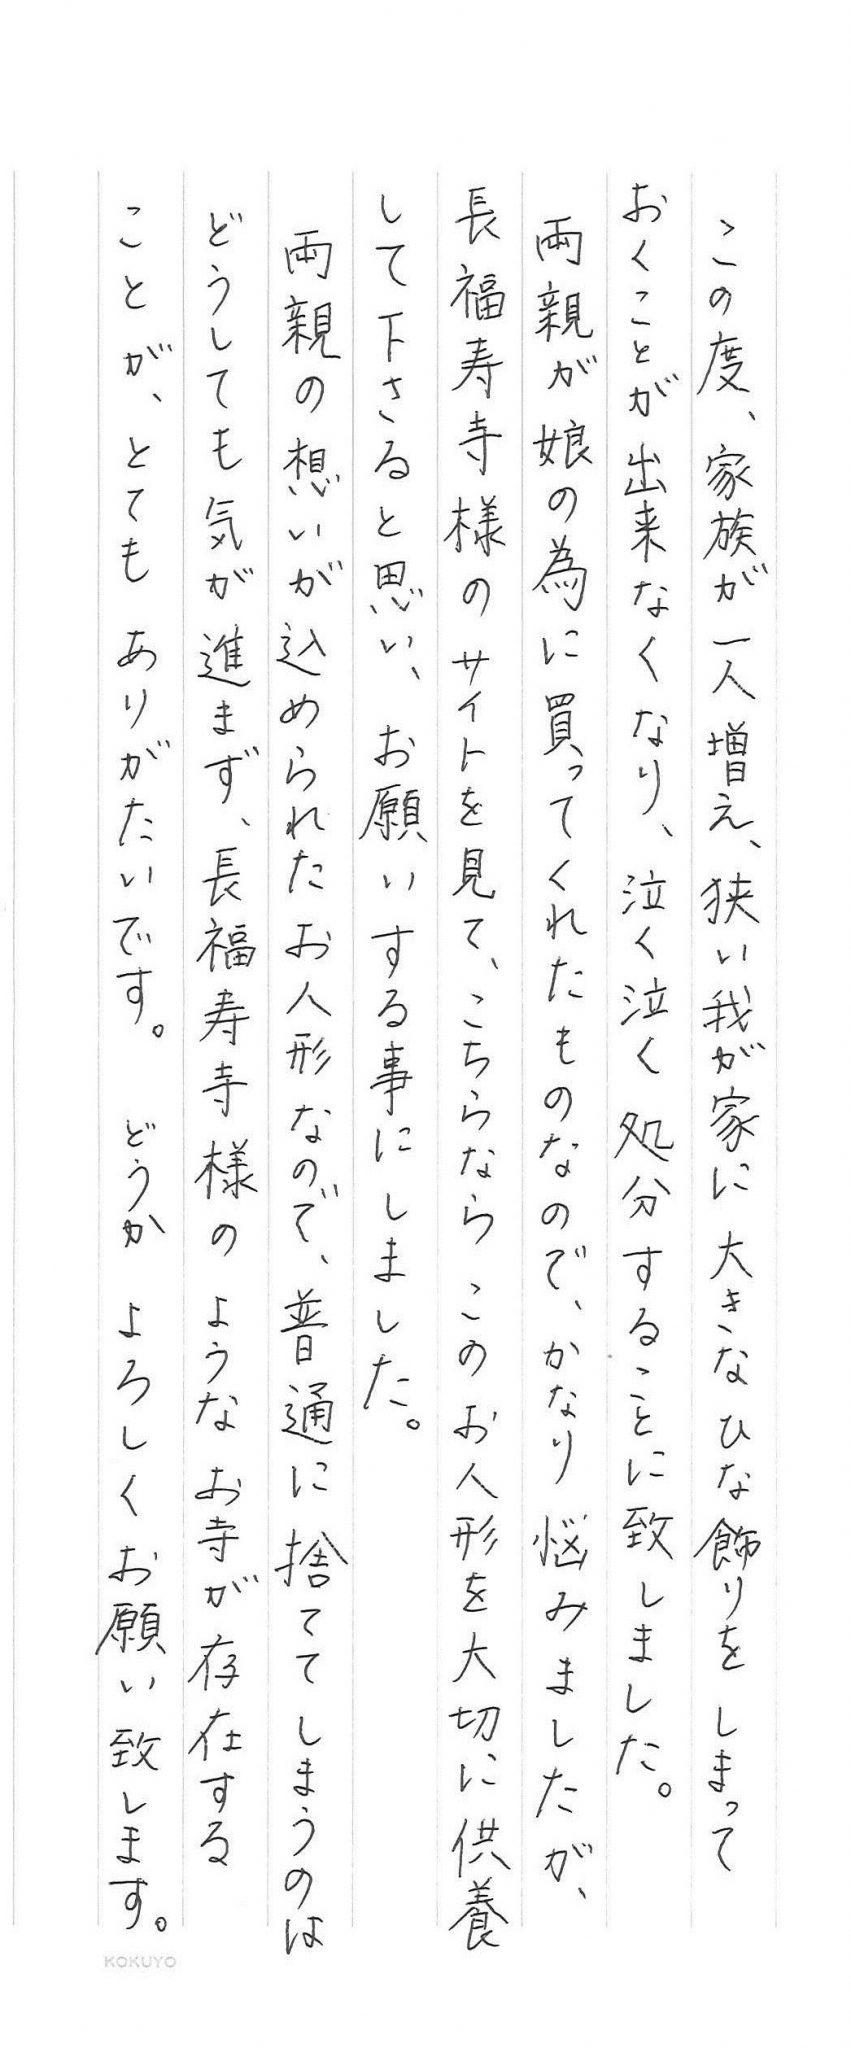 この度、家族が一人増え、狭い我が家に大きなひな飾りをしまって
おくことが出来なくなり、泣く泣く処分することに致しました。
両親が娘の為に買ってくれたものなので、かなり悩みましたが、
長福寿寺様のサイトを見て、こちらならこのお人形を大切に供養
して下さると思い、お願いする事にしました。
両親の想いが込められたお人形なので、普通に捨ててしまうのは
どうしても気が進まず、長福寿寺様のようなお寺が存在する
ことが、とてもありがたいです。 どうかよろしくお願い致します。
KOKUYO